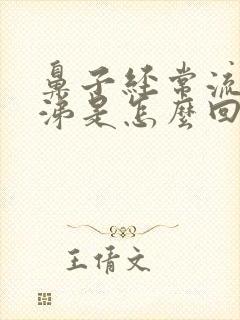 鼻子經常流
涕是怎麼回
王倩文